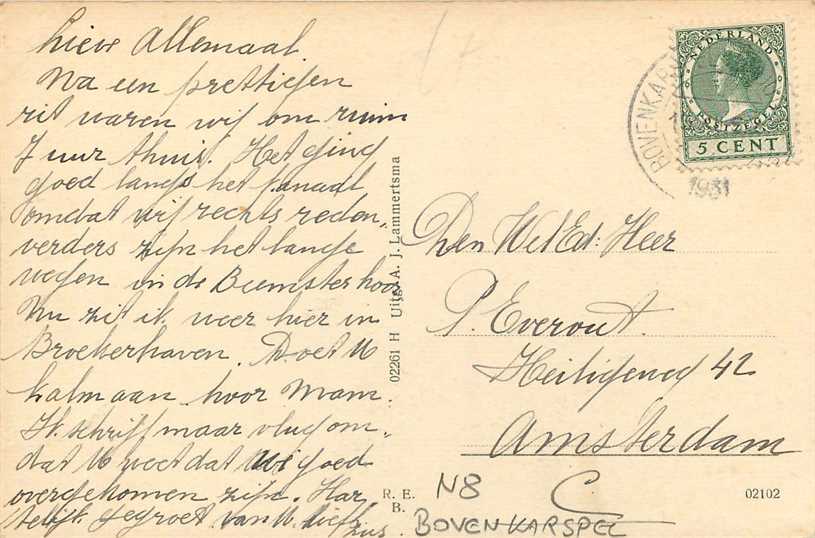 Lieve Allemaal
Na een prettigen
rit waren wij om ruim
7 uur thuis. Het ging
goed langs het kanaal
omdat wij rechts reden,
verders zijn het lange
wegen in de Beemster hoor
Nu zit ik weer hier in
Broekerhaven. Doet U
kalm aan hoor Mam.
Ik schrijf maar vlug om.
dat U weet dat wij goed
overgekomen zijn. Har
telijk gegroet van U liefh.
zus.
02261 H Uitg. A. J. Lammertsma
NEDERLAND
POSTZEGEL
5 CENT
BOVENKARSP
1931
Den WelEd: Heer
P. Everout.
Heiligeweg 42
Amsterdam
R. E.
B.
02102
N8
C
BOVENKARSPEL